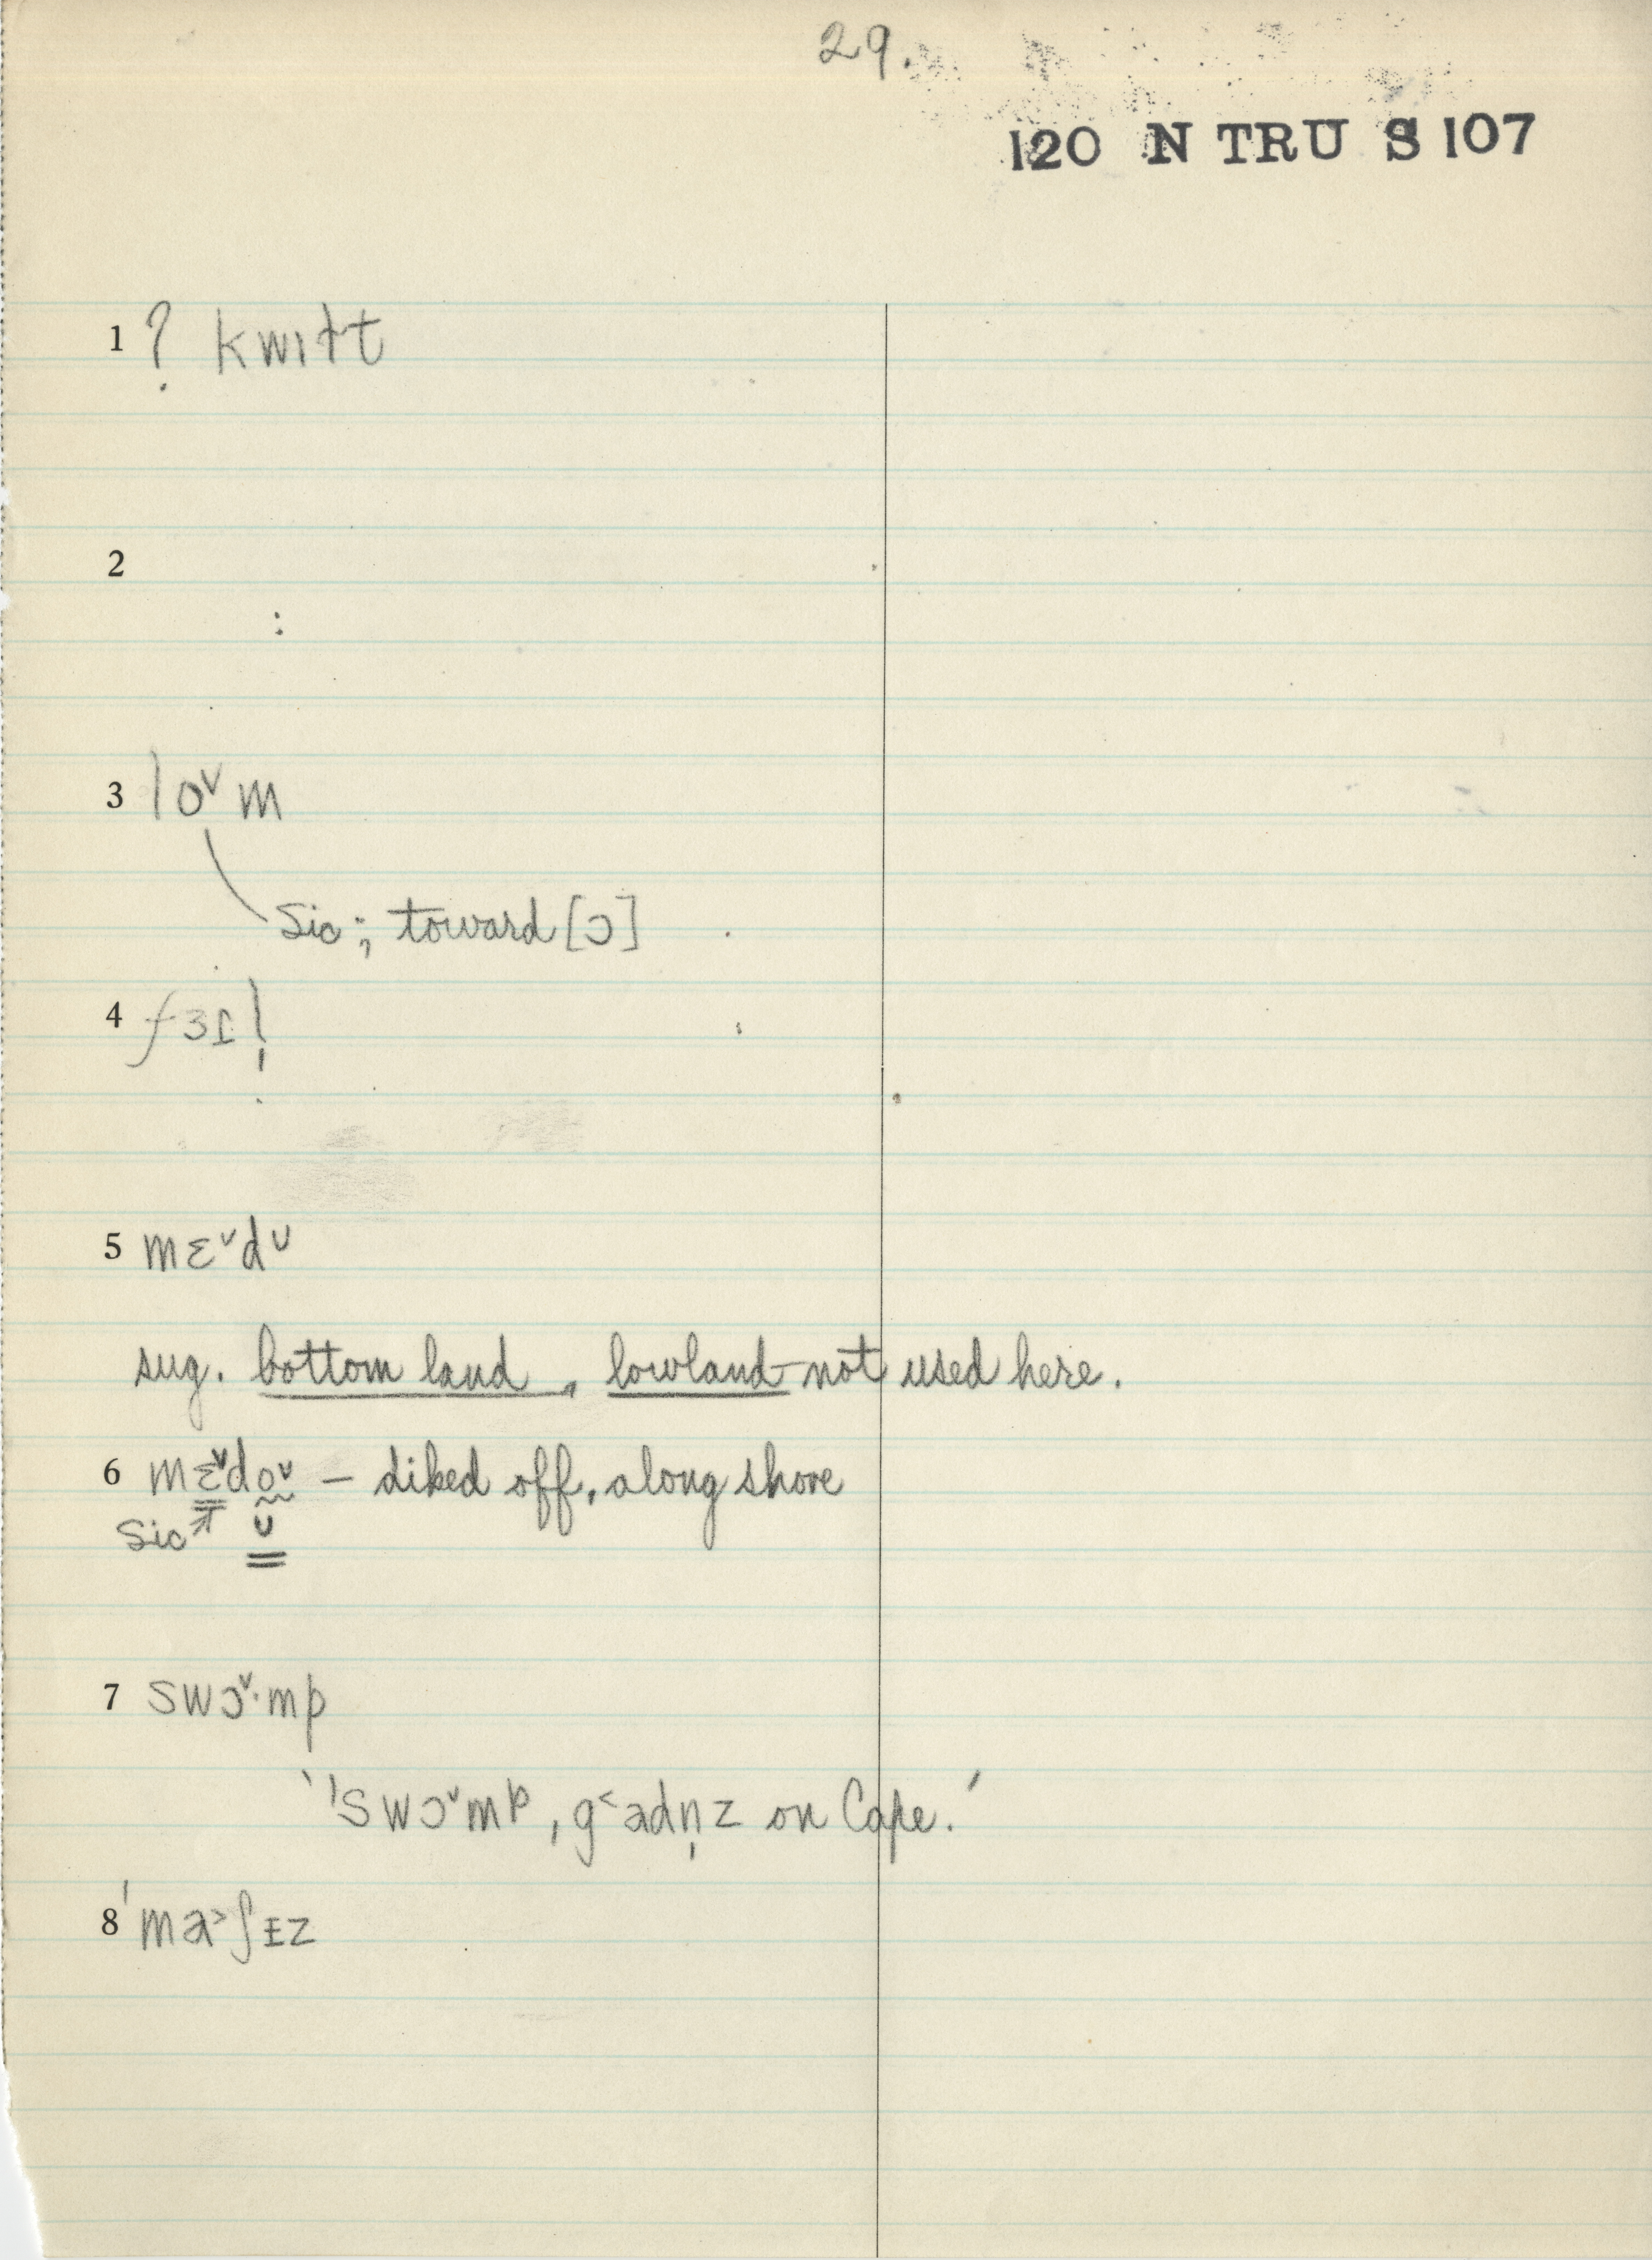 29.
120 N TRU S 107
1 ? kwɪɫt
2
3 loᵛm
Sic; toward [ɔ]
4 fɜɪl̩
5 mɛᵛdʊ
sug. bottom land, lowland not used here.
6 mɛᵛdoᵛ – diked off, along shore
Sic ʊ
7 swɔᵛ·mp
' 'swɔᵛmp, g˂adn̩z on Cape.'
8 'ma˃ʃɪz